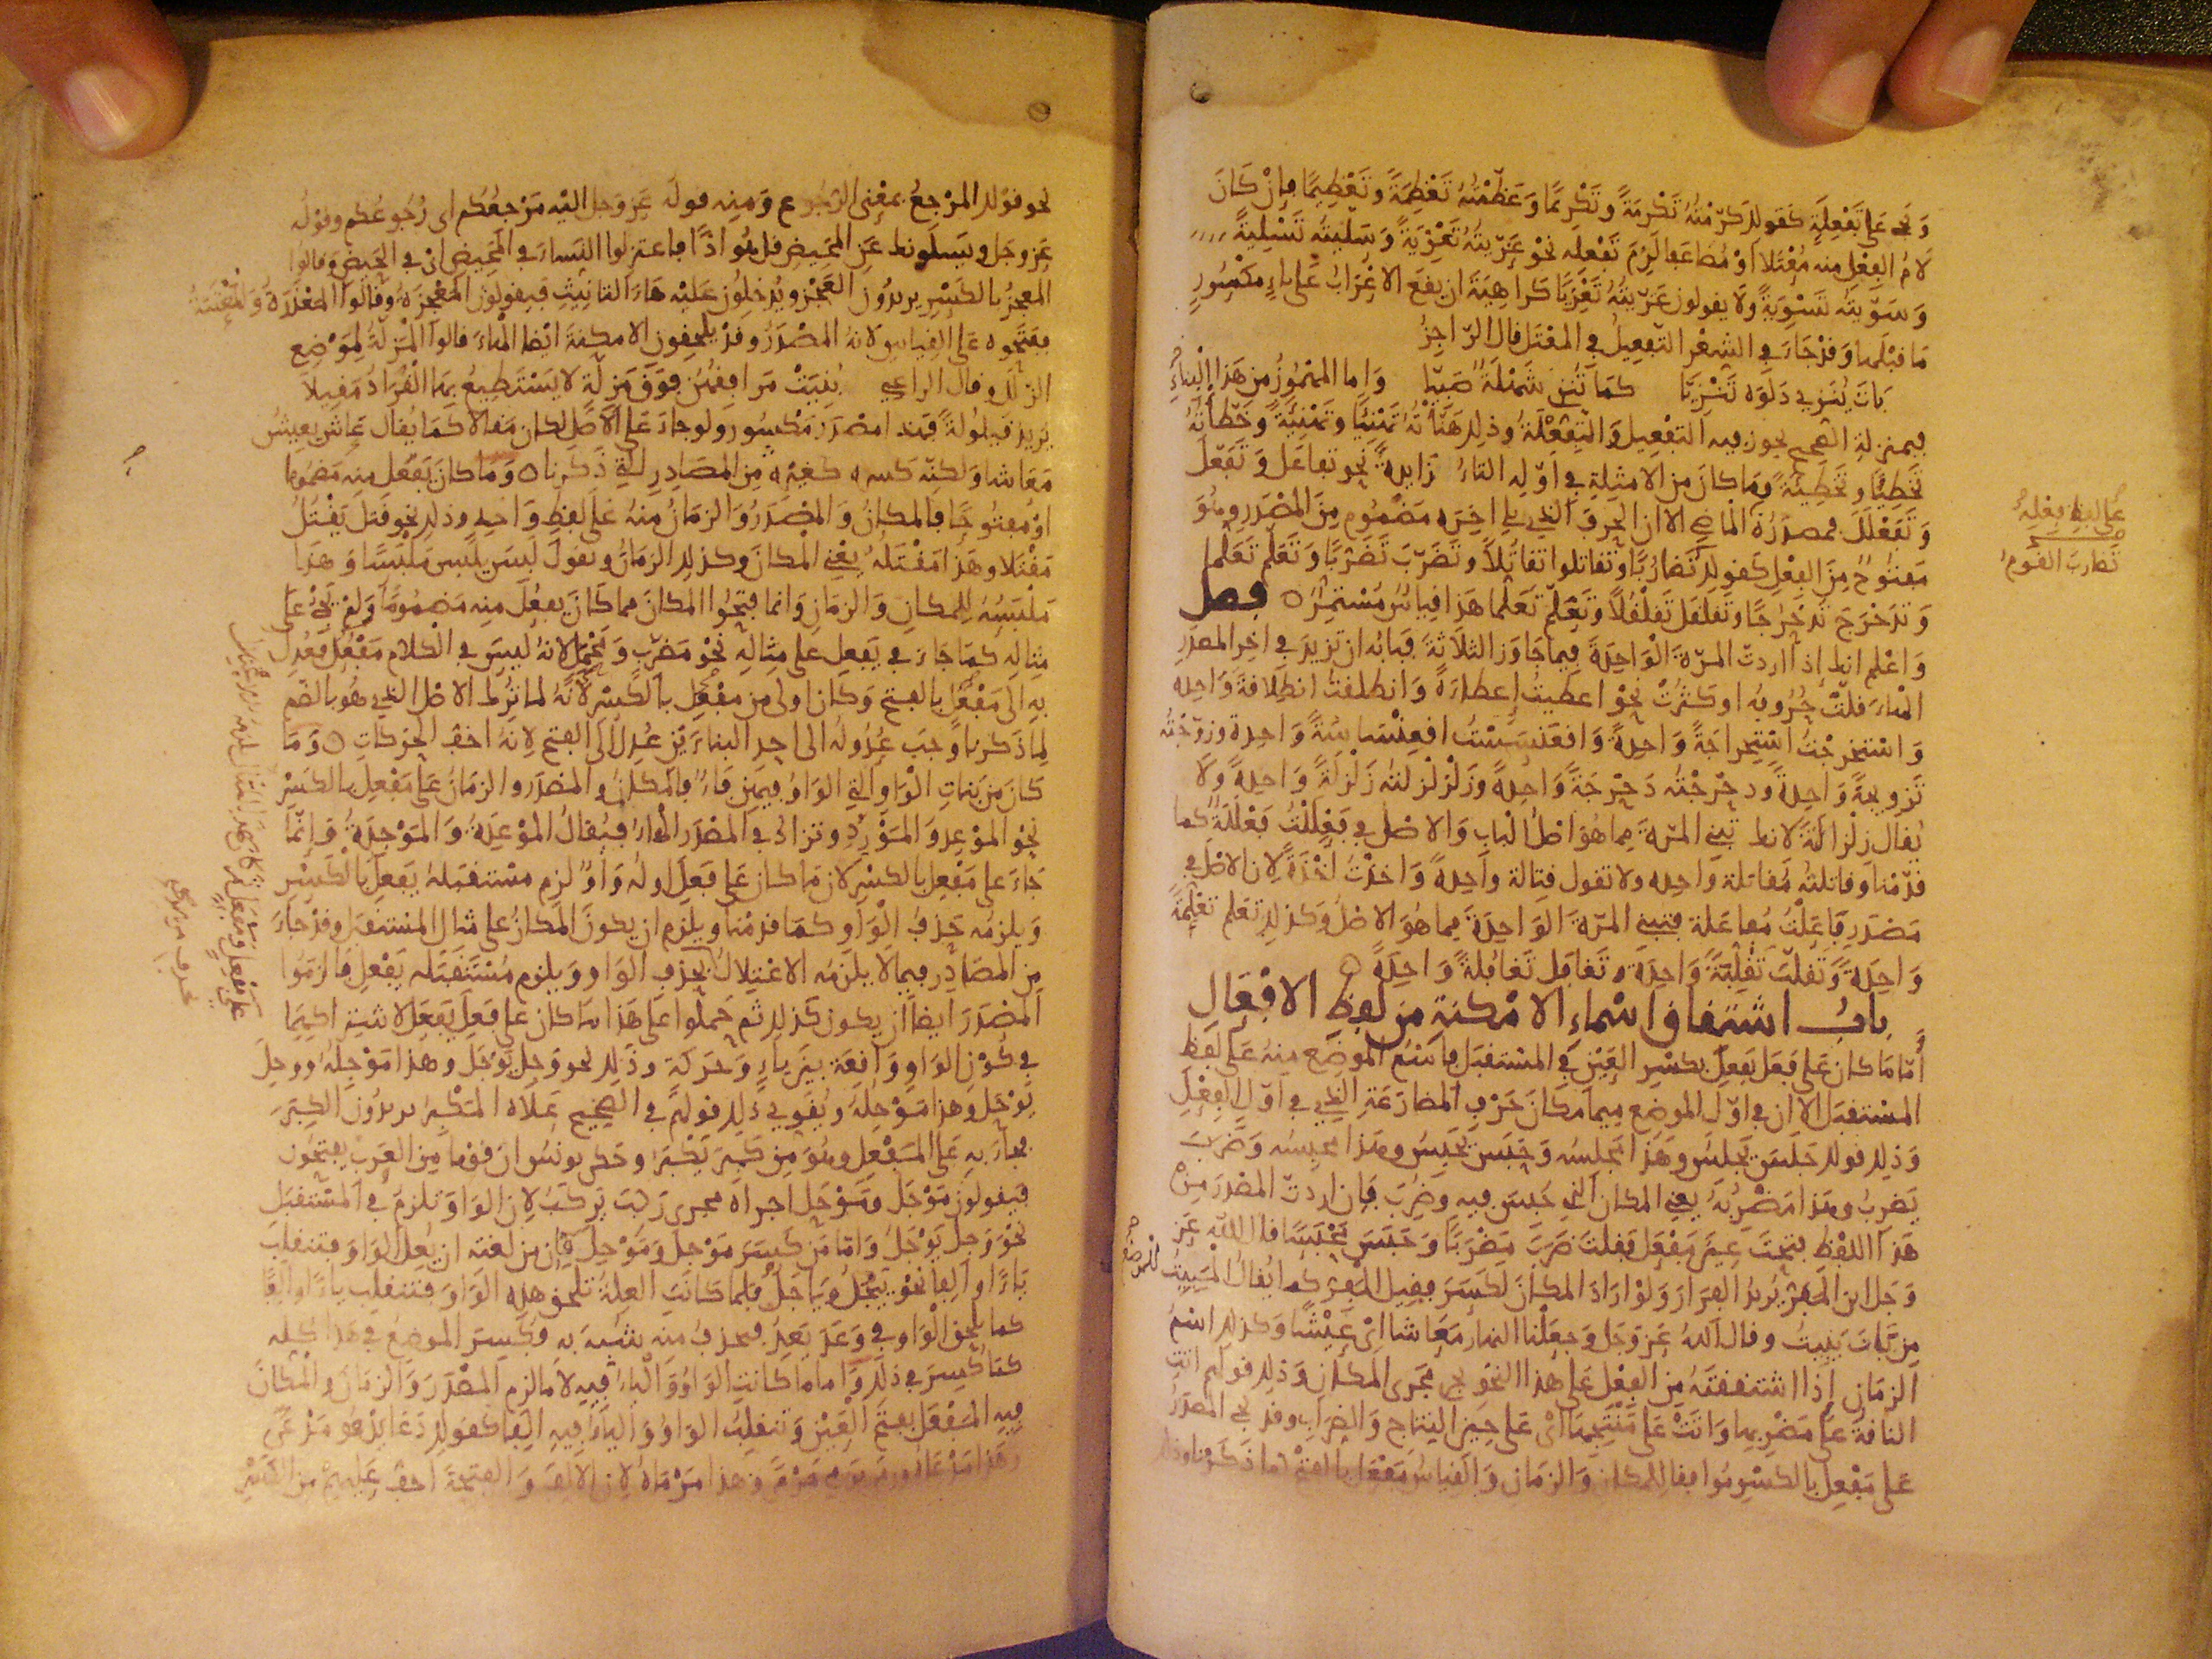 وَتجى على تَفْعِلَةٍ كقولك كَرّمْتُهُ تَكْرِمَةً وتَكْرِيمًا وَعَظّمْتُهُ تَعْظِمَةً وتَعْظِيمًا فإنْ كَانَ
لامُ الفِعْلِ منه مُعْتَلا أوْ مُضَاعَفا لَزِمَ تَفْعِلة نحْو عَزّيتُهُ تَعْزِيَةً وَسَلّيتُه تَسْلِيةً
وسَوّيتُه تَسْوِيَةً وَلَا يقولون عَزّيتُهُ تَعْزِيًا كراهِيَةَ ان يقع الاعْرَابُ عَلى ياءٍ مكسُورٍ
مَا قبْلَها وَقَدْ جَاءَ في الشِعْرِ التّفعِيلُ في المعْتَل قال الرّاجِزُ
بَاتَ يُنَزي دَلوَه تَنْزِيّا كمَا تُنَزي شَهْلَةٌ صَبِيّا وَاما المهْمُوزُ من هَذا البناءِ
فبمنزلةِ الصحيح يجوز فيه التفْعِيل وَالتّفْعِلَةُ وذلك هَنّأتُهُ تَهْنِيًّا وتَهْنِئَةً وَخَطّأتُهُ
تَخْطِيًّا وتَخْطِئَةً ومَا كانَ من الامثِلةِ في اوّله التاءُ زَايدةً نحْو تفاعَلَ وَتَفَعّلَ
وَتَفَعْلَلَ فمصدَرُه الماضي الا ان الحَرفَ الذي يلي اخِرَه مَضْمُوم مِنَ المصْدَرِ وهُوَ
مَفتُوحٌ مِنَ الفِعْلِ كقولك تَضَارُبًا وتَقاتلوا تقاتُلاً وتَضَرّبَ تَضَرّبًا وتَعَلّم تَعَلّما
وَتَدَحْرَجَ تَدَحْرُجًا وتَقلقَل تَقَلْقُلاً وتَعَلّم تَعَلّما هَذا قِيَاسٌ مُسْتمِرٌّ فصل
وَاعْلم انك إذا اردتّ المرّةَ الوَاحِدَةَ فيما جَاوَز الثلاثةَ فبابُه ان تزيدَ في اخِر المصدَرِ
الهَاءَ قلّتْ حُرُوفُه او كثرَتْ نحْوُ اعطيتُ إعطاءَةً وَانطلقتُ انطِلاقةً وَاحِدة
وَاسْتخرجْتُ اسْتِخراجَةً وَاحِدةً وَاقعَنْسَسْتُ اقعِنْسَاسَةً وَاحِدة وزوّجْتُه
تَزويجةً وَاحِدةً ودحْرَجْتُه دَحْرَجَةً وَاحِدةً وزَلْزَلْتُه زَلْزَلَةً وَاحِدةً وَلَا
يُقال زلْزالَةً لانك تبني المرّةَ مما هُوَ اصْلُ البابِ وَالاصْل في فَعْلَلْتُ فَعْلَلَةٌ كما
قدّمْنا وقاتلتُه مُقاتلةً وَاحِدة ولا تقول قتالة وَاحِدةً وَاخذْتُ اخْذَةً لان الاصْلَ في
مَصْدَرِ فَاعَلْتُ مُفاعَلة فتبني المرّة الوَاحِدَةَ مما هُوَ الاصْلُ وكذلك تعَلم تعَلّمةً
وَاحِدةً وتَقلّبَ تَقَلّبَةً وَاحِدَة وتَغافَل تَغافُلَةً وَاحِدَةً
بابُ اشتقاق اسْماءِ الامْكنة من لفظ الافْعَال
أمّا مَا كان عَلى فَعَلَ يَفْعِلُ بكسْرِ العَيْنِ في المسْتقبَل فاسْمُ الموضع منهُ عَلى لفظ
المستقبَل الا ان في اوّل الموضع ميما مَكانَ حَرْفِ المضارَعَةِ الذي في اوّل الفِعْلِ
وَذلك قولك جَلَسَ يجلِسُ وهَذا مجلِسُه وحَبَسَ يحْبِسُ وهذا محبِسُه وَضَرَبَ
يَضربُ وهَذا مَضْرِبُهُ يعني المكان الذي حَبسَ فيه وضَرَبَ فإن اردتّ المصْدَرَ مِنْ
هَذا اللفظِ فتحتَ عَيْنَ مَفْعَل فقلت ضَرَبَ مَضْرَبًا وَحَبَسَ مَحْبَسًا قال الله عَز
وَجَل اين المفَرّ يُريدُ الفِرَارَ وَلوْ ارَادَ المكانَ لكَسَرَ فقيل المفِرّ كما يُقالُ المَبِيتُ للموضع
مِن بَاتَ يَبِيتُ وقال اللهُ عَزّ وَجَل وجعلْنا النهارَ مَعَاشا ايْ عَيْشًا وَكذلك اسْمُ
الزمَانِ إذا اشتققتَهُ مِن الفِعْل عَلى هَذا النحْو يجري مجْرى المكان وَذلك قولهم اتتِ
الناقةُ على مَضْرِبها وَاتتْ عَلى مَنْتِجها ايْ عَلى حِين النِتاج وَالضِرَابِ وقد يجي المصدَرُ
عَلى مَفْعِل بالكسْرِ مُوافِقا للمكان وَالزمَانِ وَالقِيَاسُ مَفْعَل بالفتْح لما ذكرنا وذلك
عَلى لفظِ فِعْلِهِ
تَضارَبَ القَومُ
نحو قولك المرْجِعُ بمعْنى الرُجُوع وَمِنه قوله عَزّ وَجَل اليه مَرْجِعُكُم اى رُجُوعُكم وقوْله
عَز وجَل ويَسْئلونك عَنِ المحِيضِ قل هُوَ اذًى فاعتزلوا النِسَاءَ في المحِيضِ اى في الحَيضِ وقالوا
المعجِزُ بالكسْرِ يريدُون العَجْزَ ويُدخِلُون عَليْه هَاءَ التانِيثِ فيقولون المعْجِزَةُ وقالوا المعْذِرَةُ وَالمعْتِبَةُ
ففتَحُوه عَلى القِياسِ لانهُ المصْدَرُ وقدْ يلحِقون الامكنةَ ايْضا الهَاءَ قالوا المَزِلّةُ لِمَوْضِع
الزلَل وقال الراعي بُنِيَتْ مَرافِقُهُنّ فَوْقَ مَزِلّةٍ لا يَسْتَطِيعُ بهَا القُرَادُ مَقِيلا
يُريد قَيلُولَةً فهَذا مصْدَر مَكْسُورٌ ولوْ جاءَ عَلى الاصْل لكان مَقالا كمَا يُقال عَاشَ يعِيشُ
مَعَاشا وَلكنّه كسرَه كغيْرِه مِن المصَادِرِ التي ذَكرنا وَمَا كانَ يَفْعُل منه مَضْمُوما
اوْ مفتُوحًا فالمكانُ وَالمصْدَرُ وَالزمَانُ مِنهُ عَلى لفظٍ وَاحِد وذلك نحو قتلَ يَقْتُلُ
مَقْتَلا وهَذا مَقْتَلُهُ يعْني المكانَ وكذلك الزمَانُ وتقولُ لَبِسَ يَلْبَسُ مَلْبَسًا وَهَذا
مَلْبَسُهُ لِلمكانِ وَالزمَانِ وَانما فتَحُوا المكانَ مما كانَ يفعُل منه مَضمُومًا وَلمْ يَجئْ عَلى
مِثالِه كمَا جَاءَ في يَفعِل على مِثالِه نحْوُ مَضْرِبٍ وَمَحْمِل لانهُ ليسَ في الكلام مَفْعُل فعُدِلَ
بِهِ الى مَفْعَلٍ بالفتح وَكانَ اولى مِن مَفْعِل بالكسْرِ لانّهُ لما تُرِكَ الاصْل الذي هُو بالضّم
لِما ذَكرنا وَجَبَ عُدُولهُ الى احَدِ البناءَيْنِ عُدِلَ الى الفتح لانهُ اخفّ الحَركاتِ وَمَا
كانَ من بَناتِ الوَاو التي الوَاوُ فيهِن فَاءٌ فالمكانُ والمصْدَرُ والزمَانُ عَلى مَفْعِلٍ بالكسْرِ
نحْو المَوْعِدِ وَالمَوْرِدِ وتزادُ في المصْدَرِ الهَاءُ فيُقالُ المَوْعِدَةُ وَالمَوْجِدَةُ وَإنّما
جَاءَ على مَفْعِل بالكسْرِ لان مَا كانَ عَلى فَعَل اوله وَاوٌ لزِم مسْتقبَلهُ يَفْعِل بالكسْر
وَيلزمُه حَذفُ الوَاو كمَا قدمْنا ويلزَم ان يكونَ المكانُ على مثال المستقبَل وقدْ جَاءَ
مِن المصَادِر فيما لا يلزَمُه الاعْتِلالُ بحَذفِ الوَاو وَيلزم مُسْتقبَله يَفْعِل فالزمُوا
المصْدَرَ ايضًا ان يكون كذلك ثم حَملُوا عَلى هَذا مَا كان على فَعِلَ يَفْعَل لاشتِراكِهِمَا
في كَوْنِ الوَاوِ وَاقِعَة بَيْنَ يَاءٍ وَحَرَكَةٍ وذلك نحو وَجِلَ يَوْجَل وهذا مَوْجِلُهُ ووَحِلَ
يَوْحَل وهذا مَوْحِلُهُ ويُقوي ذلك قولهُمْ في الصحِيح عَلاهُ المَكْبِرُ يريدُون الكِبَرَ
فجاءَ بهِ عَلى المَفْعِل وهُوَ مِنْ كَبِرَ يَكْبَرُ وحَكى يونُسُ ان قوْما مِن العَرَبِ يفتحُون
فيقولونَ مَوْجَل ومَوْحَل اجراهُ مجرى رَكِبَ يَرْكَبُ لان الوَاوَ تلزمُ في المسْتقبَل
نحْوَ وَجِلَ يَوْجَلُ وَامّا مَن كَسَرَ مَوْجِلٌ وَمَوْحِلٌ فإن مِن لغتِه ان يُعِلّ الوَاوَ فتنقلب
يَاءً او ألِفا نحْوَ يَيْجَلُ ويَاجَلُ فلمّا كانَتِ العِلةُ تلحَق هَذِه الوَاوَ فتنقلِبُ ياءً او ألِفًا
كما يلحَق الوَاوَ في وَعَدَ يَعِدُ فحذفُ منه شُبِّهَ به فكُسِرَ الموضعُ في هَذا كلّه
كمَا كُسِرَ في ذلك وَاما مَا كانتِ الوَاوُ وَاليَاءُ فيهِ لامًا لزم المصْدَرَ وَالزمَانَ والمكانَ
فيهِ المَفْعَل بفتح العَيْنِ وَتنقلِبُ الوَاوُ وَاليَاءُ فيهِ ألِفا كقولك دَعَا يَدْعُو مَدْعًى
وهَذا مَدْعَاهُ ورمى يَرمي مَرْمًى وهَذا مَرْمَاهُ لان الالِفَ وَالفتحَةَ اخفّ عَليهِمْ مِن الكسْرِ